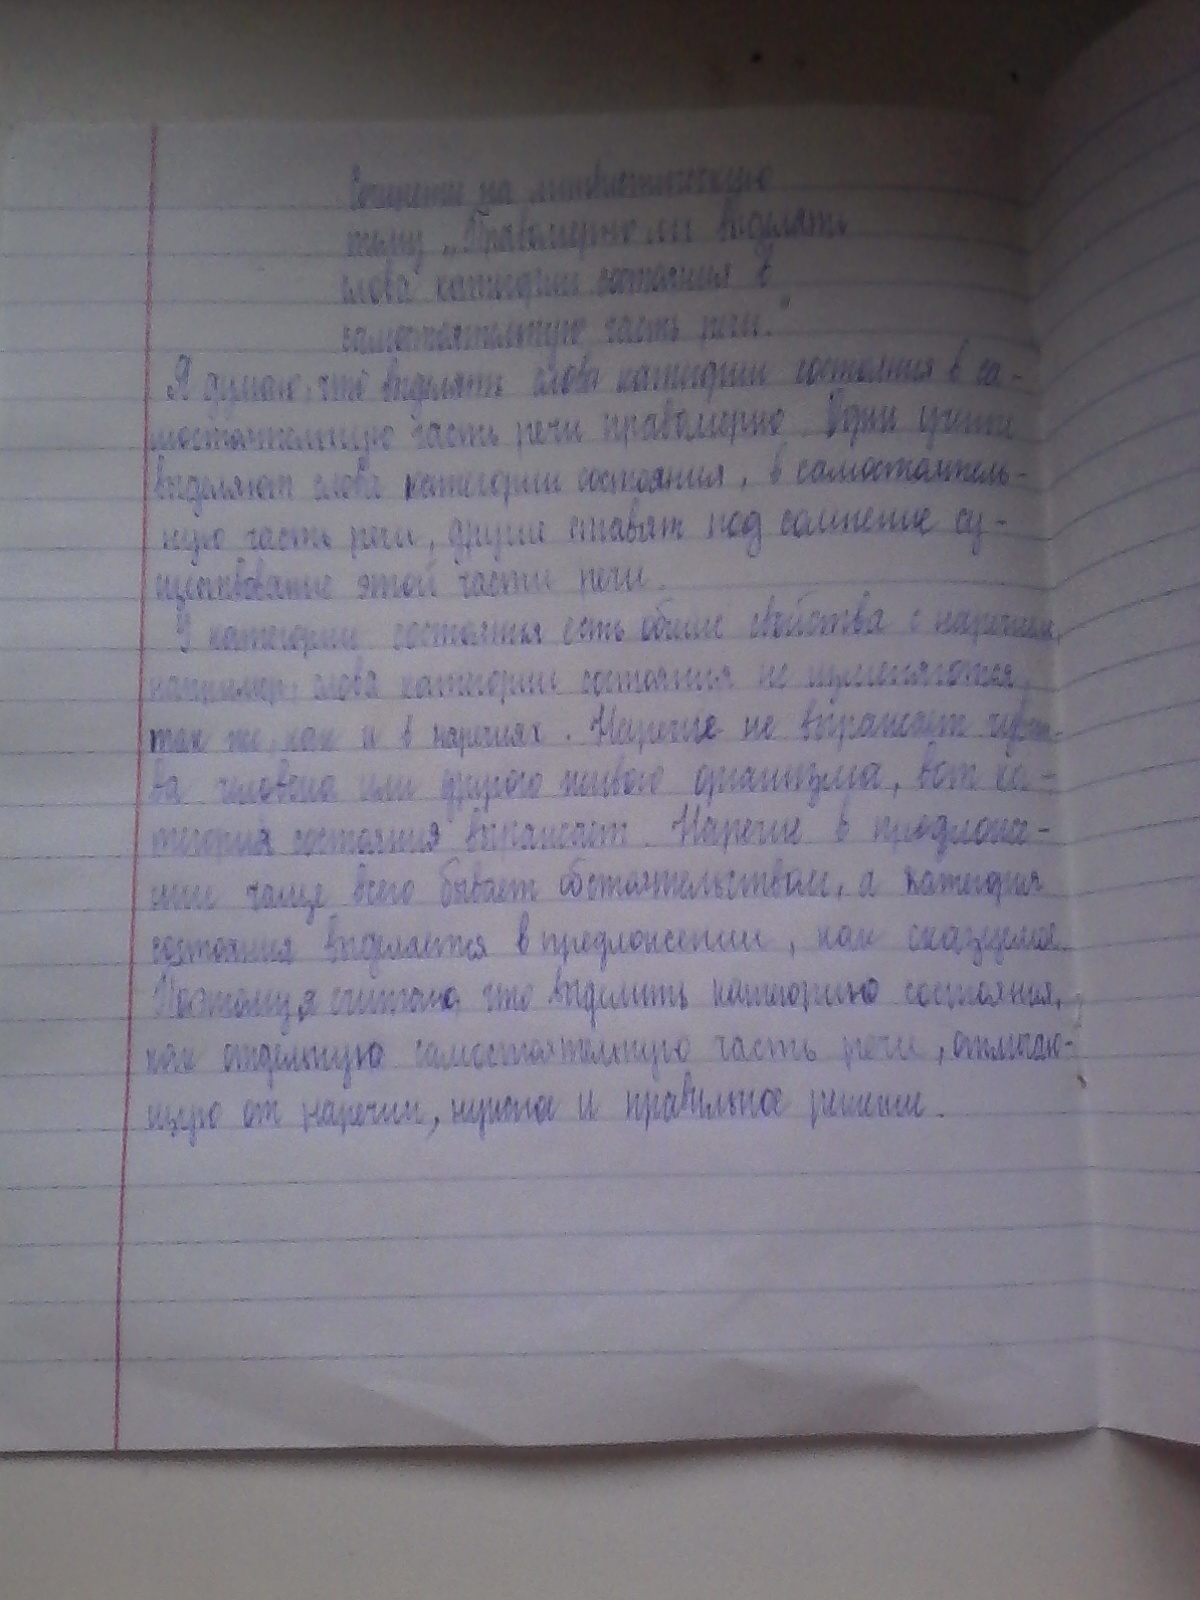 Сочинение на лингвистическую
тему „Правомерно ли выделять
слова категории состояния в
самостоятельную часть речи."
Я думаю, что выделять слова категории состояния в са-
мостоятельную часть речи правомерно. Одни учёные
выделяют слова категории состояния, в самостоятель-
ную часть речи, другие ставят под сомнение су-
ществование этой части речи.
У категории состояния есть общие свойства с наречием,
например, слова категории состояния не изменяются,
так же, как и в наречиях. Наречие не выражает чувст-
ва человека или другого живого организма, вот ка-
тегория состояния выражает. Наречие в предложе-
нии чаще всего бывает обстоятельством, а категория
состояния выделяется в предложении, как сказуемое.
Поэтому я считаю, что выделить категорию состояния,
как отдельную самостоятельную часть речи, отличаю-
щую от наречии, нужное и правильное решение.